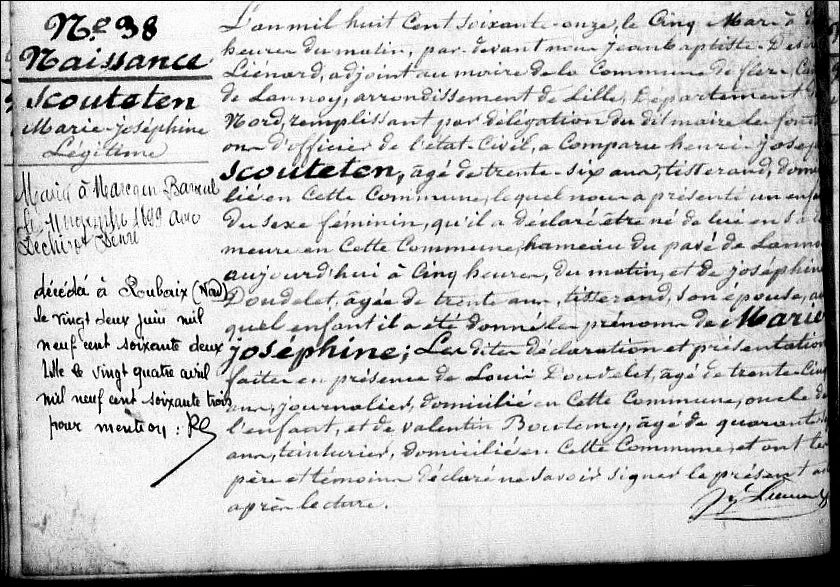 N.º 38
Naissance
Scouteten
Marie-Joséphine
Légitime
Marié à Marcq en Barœul
le 1899 avec
décédée à Roubaix (Nord)
le vingt deux juin mil
neuf cent soixante deux
Lille le vingt quatre avril
mil neuf cent soixante trois
pour mention :
L'an mil huit cent soixante-onze, le Cinq Mars à
heures du matin, par-devant nous jean baptiste-
Liénard, adjoint au maire de la Commune de flers, Can
de Lannoy, arrondissement de Lille, Département d
Nord, remplissant par délégation du dit maire les fonc
ons d'officier de l'état-Civil, a Comparu henri-josep
Scouteten, âgé de trente-six ans, tisserand, domi
lié en Cette Commune, lequel nous a présenté un enfan
du sexe féminin, qu'il a déclaré être né de lui en sa de
meure en Cette Commune, hameau du pavé de Lanno
aujourd'hui à Cinq heures, du matin, et de joséphine
Doudelet, âgée de trente ans, tisserand, son épouse, au
quel enfant il a été donné les prénoms de Marie
joséphine; Les dites déclaration et présentation
faites en présence de Louis Doudelet, âgé de trente-Cinq
ans, journalier, domicilié en Cette Commune, oncle de
l'enfant, et de valentin Boutemy, âgé de quarante
ans, teinturier, domicilié en Cette Commune, et ont les
père et témoins déclaré ne savoir signer le présent a
après lecture.